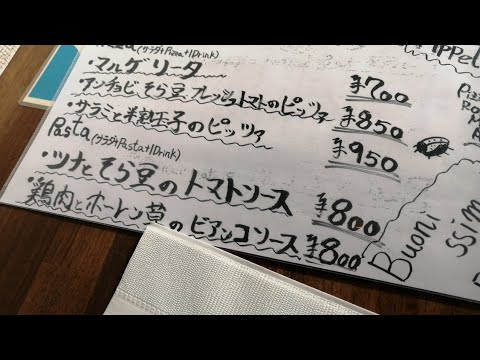 (サラダ+Pizza+1Drink)
・マルゲリータ ¥700
アンチョビ、そら豆、フレッシュトマトのピッツァ ¥850
・サラミと半熟玉子のピッツァ ¥950
Pasta (サラダ+Pasta+1Drink)
・ツナとそら豆のトマトソース ¥800
・鶏肉とホーレン草のビアンコソース ¥800
Buoni
ssim